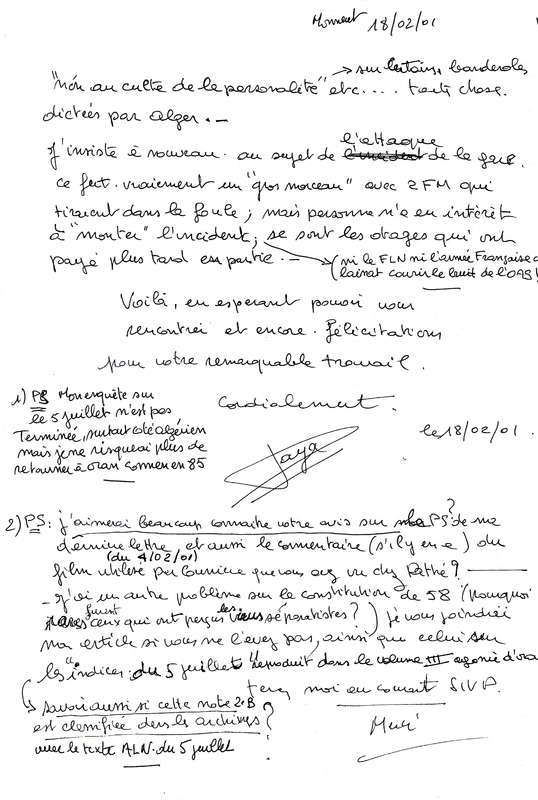 18/02/01
→ sur certains banderoles
"non au culte de la personalité" etc.... toute chose
dictées par alger. —
l'attaque
J'insiste à nouveau. au sujet de l'incident de la gare.
ce fut. vraiment un "gros morceau" avec 2 FM qui
tiraient dans la foule ; mais personne n'a eu intérêt
à "monter" l'incident ; se sont les otages qui ont
payé plus tard en partie. —
(ni le FLN ni l'armée Française
laissait courir le bruit de l'OAS!
Voilà, en esperant pouvoir vous
rencontrer et encore. Félicitations
pour votre remarquable travail.
Cordialement.
1) PS Mon enquête sur
le 5 juillet n'est pas
Terminée, surtout coté algérien
mais je ne risquerai plus de
retourner à oran comme en 85
le 18/02/01.
2) PS: j'aimerai beaucoup connaitre votre avis sur PS de ma
dernière lettre et aussi le commentaire (s'il y en a) du
(du 4/02/01)
film utilisé par Courrière que vous avez vu chez Pathé?
- j'ai un autre problème sur la constitution de 58 (pourquoi
furent
ceux qui ont perçus les séparatistes?) je vous joindrai
mon article si vous ne l'avez pas, ainsi que celui sur
les "indices du 5 juillet" reproduit dans le volume III agonie d'ora
tenez moi au courant S.V.P.
Savoir aussi si cette note 2.B
est classifiée dans les archives?
avec le texte ALN. du 5 juillet
Merci